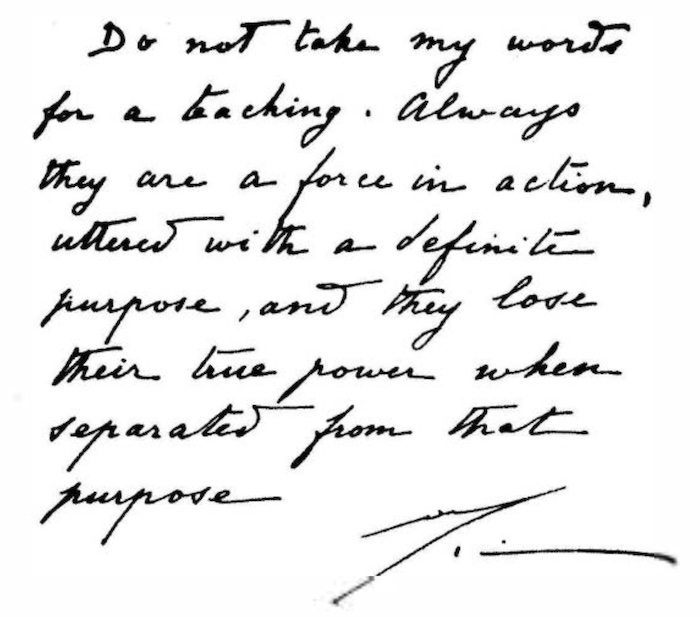 Do not take my words
for a teaching. Always
they are a force in action,
uttered with a definite
purpose, and they lose
their true power when
separated from that
purpose